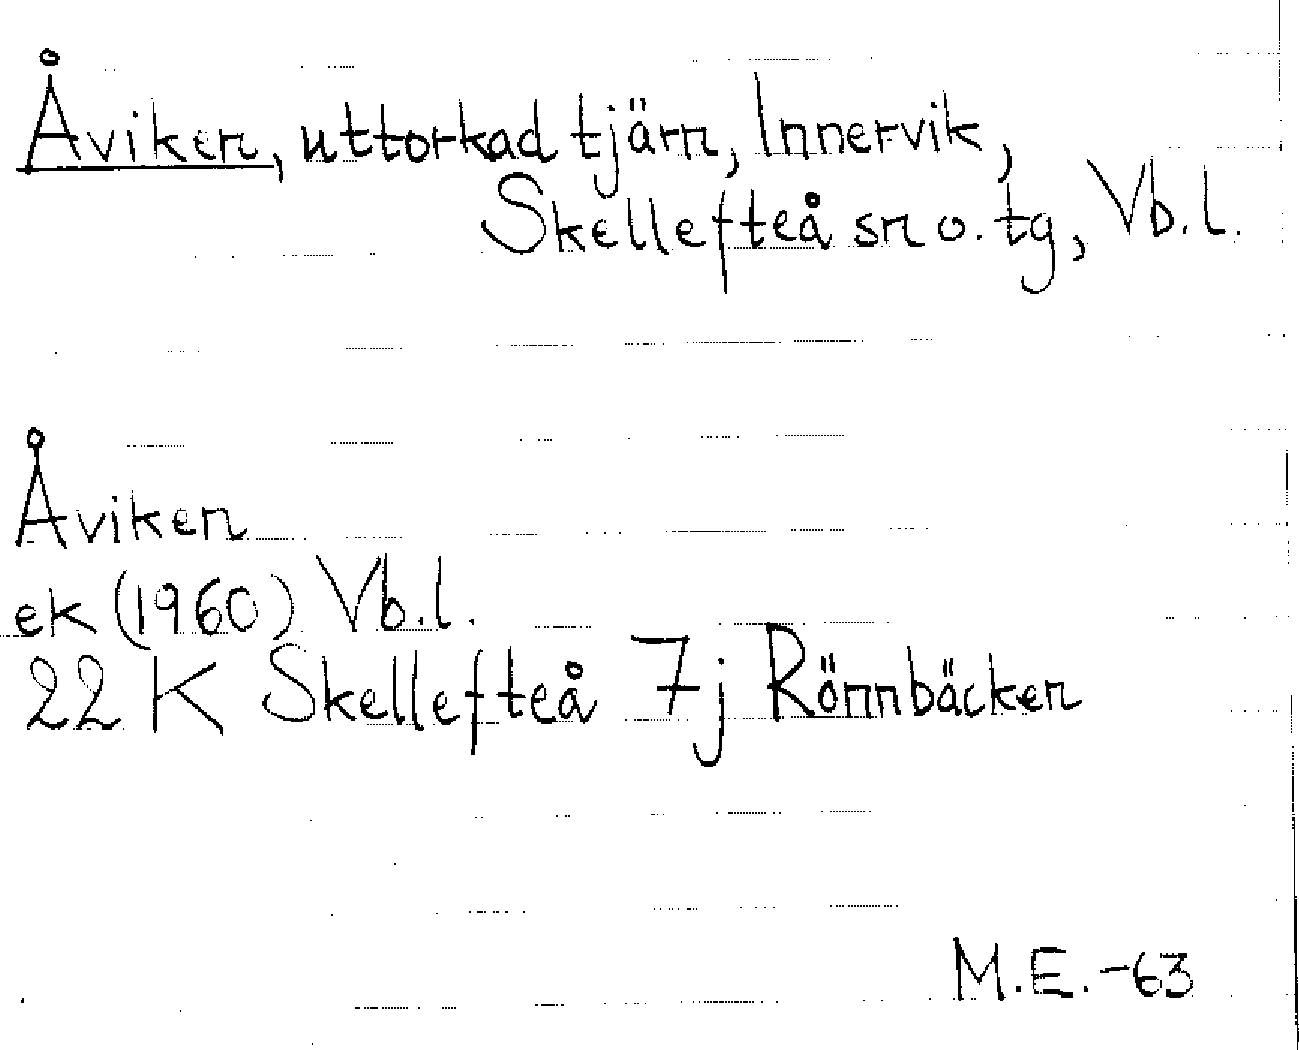 Åviken, uttorkad tjärn, Innervik,
Skellefteå sn o. tg, Vb. l.
Åviken
ek (1960) Vb. l.
22 K Skellefteå 7j Rönnbäcken
M.E. -63